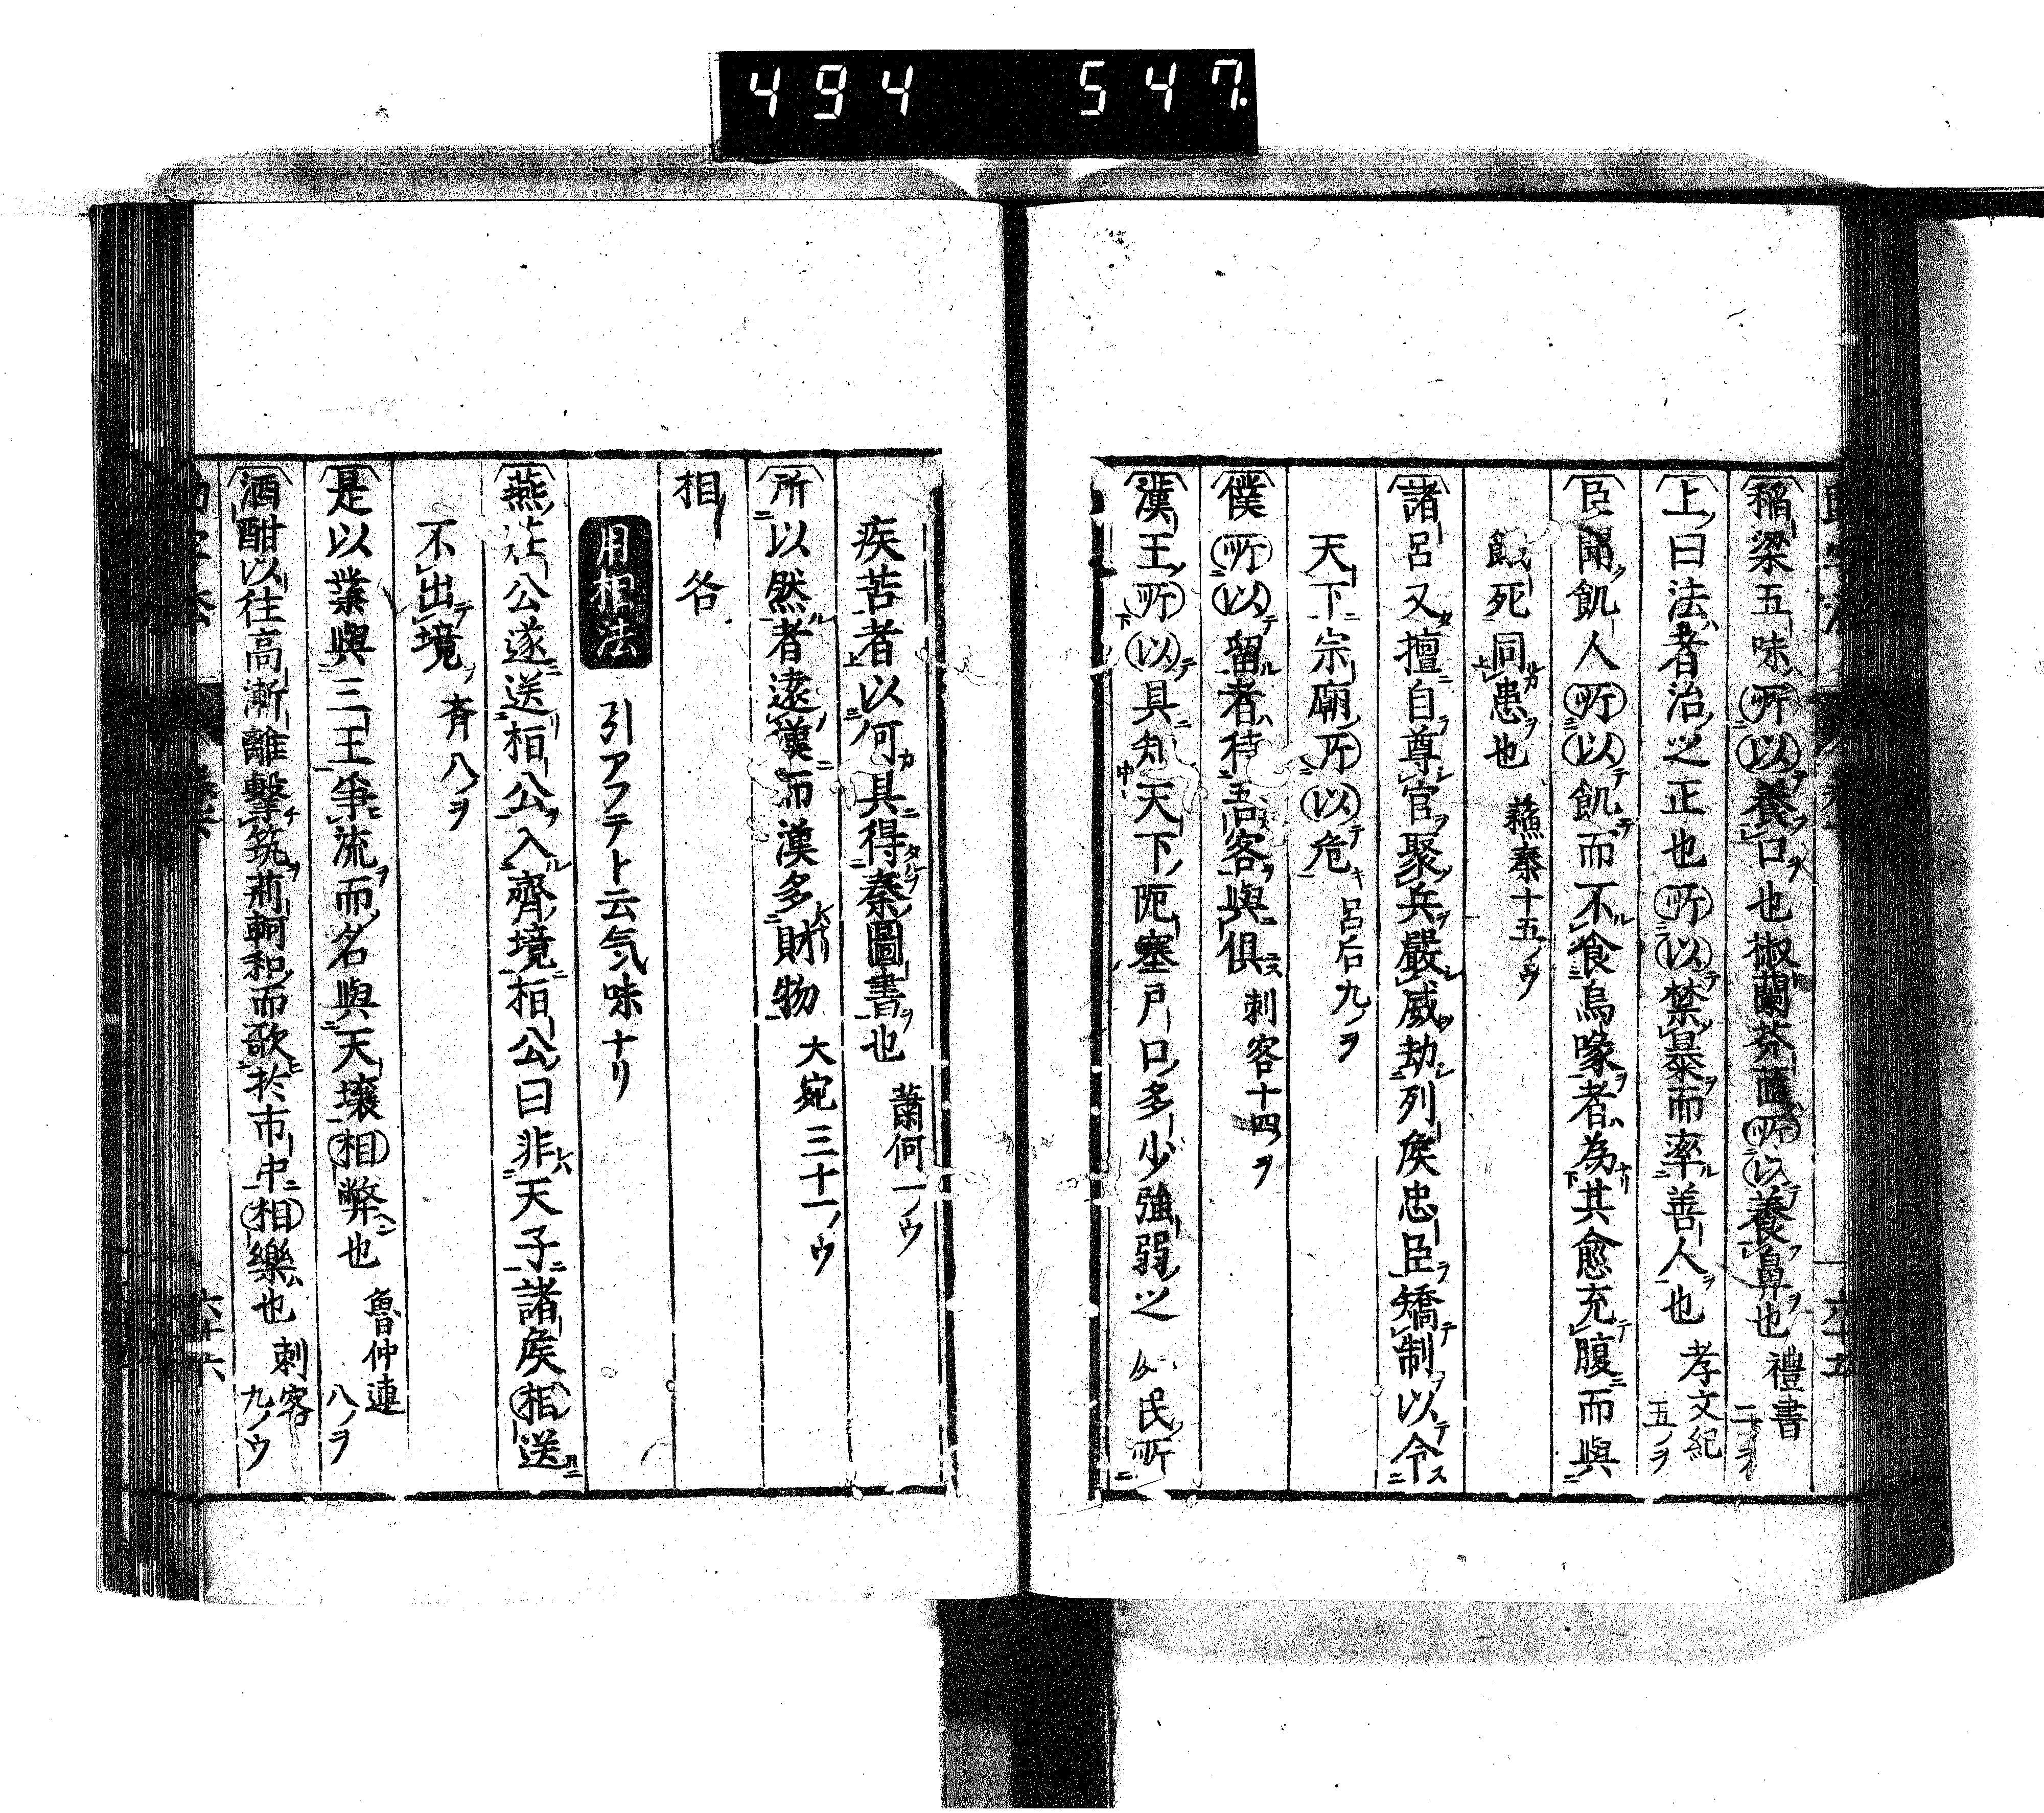 494 547.
稻梁五味所以養口也椒蘭芬茝所以養鼻也 禮書二ノヲ
上曰法者治之正也所以禁暴而率善人也 孝文紀五ノヲ
臣聞飢人所以飢而不食烏喙者為其愈充腹而與
餓死同患也 蘇秦十五ノウ
諸呂又擅自尊官聚兵嚴威劫列矦忠臣矯制以令
天下宗廟所以危 呂后九ノヲ
僕所以留者待吾客與俱 刺客十四ヲ
漢王所以具知天下阨塞戸口多少強弱之 民所
疾苦者以何具得秦圖書也 蕭何一ノウ
所以然者遠漢而漢多財物 大宛三十一ノウ
相 各
用相法 引アフテト云気味ナリ
燕莊公遂送桓公入齊境桓公曰非天子諸矦相送
不出境 斉八ヲ
是以業與三王爭流而名與天壤相弊也 魯仲連八ノヲ
酒酣以往高漸離擊筑荊軻和而歌於市中相樂也 刺客九ノウ
六十六